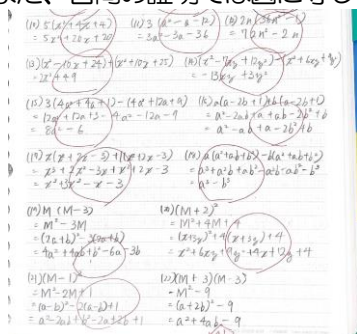 (10) 5(x²+4x+4)
= 5x²+20x+20
(11) 3(a²-a-12)
= 3a²-3a-36
= 72n²-2n
(13) (x²-10x+24)+(x²+10x+25)
= 2x²+49
= -13xy+3y²
(15) 3(4a²+4a+1)-(4a²+12a+9)
= 12a²+12a+3-4a²-12a-9
= 8a²-6
(16) a(a-2b+1)+b(a-2b+1)
= a²-2ab+a+ab-2b²+b
= a²-ab+a-2b²+b
(17) x(x+2x-3)+(x²+2x-3)
= x³+2x²-3x+x²+2x-3
= x³+3x²-x-3
(18) a(a²+ab+b²)-b(a²+ab+b²)
= a³+a²b+ab²-a²b-ab²-b³
= a³-b³
(19) M(M-3)
= M²-3M
= (2a+b)²-3(2a+b)
= 4a²+4ab+b²-6a-3b
(20) (M+2)²
= M²+4M+4
= (x+3y)²+4(x+3y)+4
= x²+6xy+9y²+4x+12y+4
(21) (M-1)²
= M²-2M+1
= (a-b)²-2(a-b)+1
= a²-2ab+b²-2a+2b+1
(22) (M+3)(M-3)
= M²-9
= (a+2b)²-9